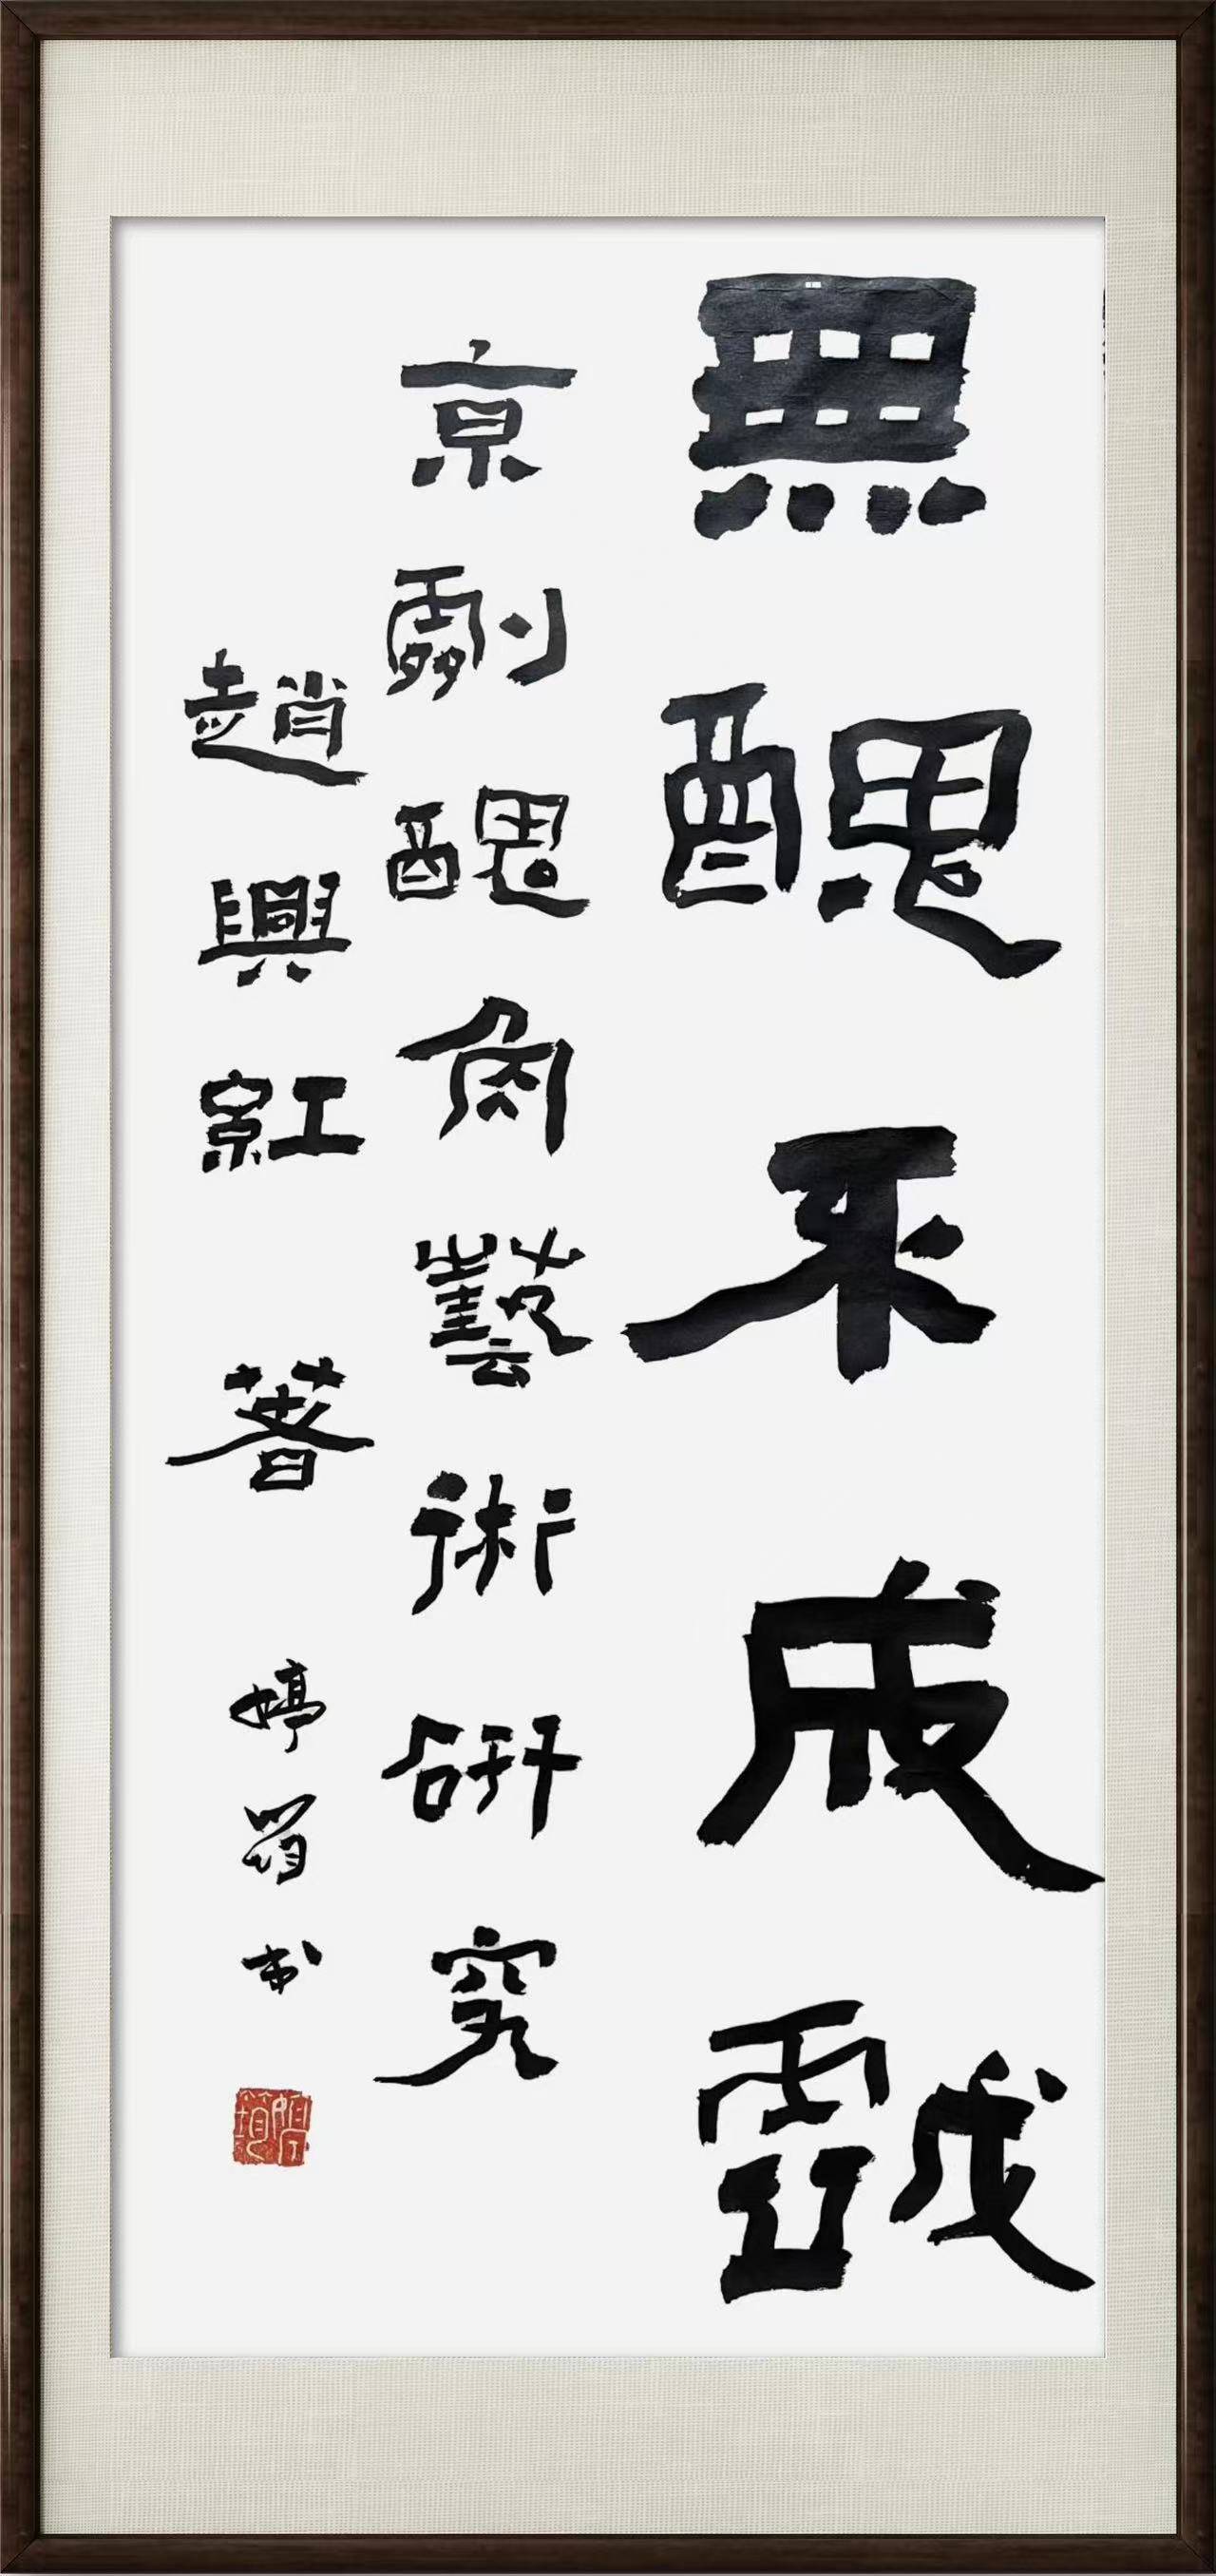 無醜不成戲
京劇醜角藝術研究
趙興紅 著 婷筠书